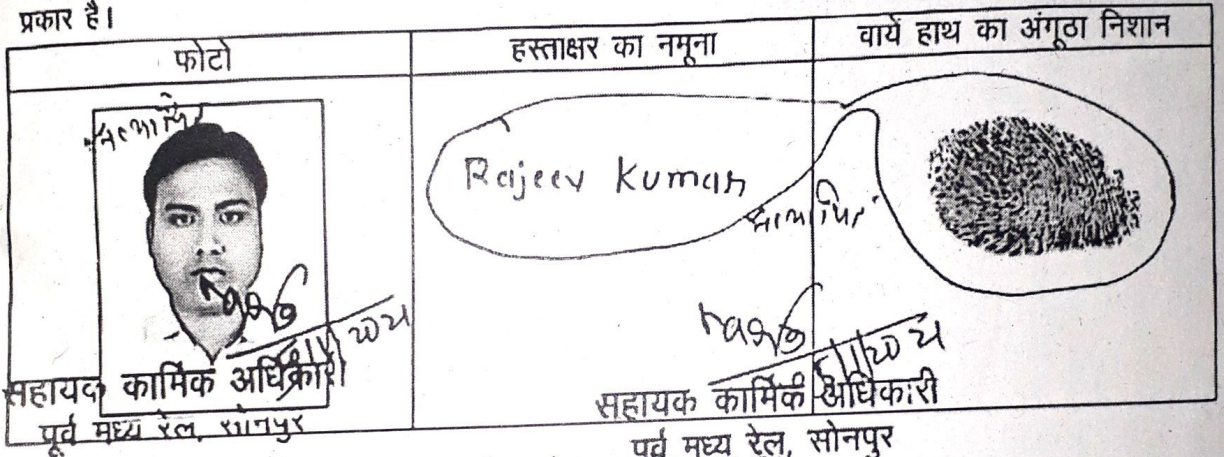 प्रकार है।
फोटो
हस्ताक्षर का नमूना
वायें हाथ का अंगूठा निशान
Rajeev Kumar
सहायक कार्मिक अधिकारी
पूर्व मध्य रेल, सोनपुर
सहायक कार्मिक अधिकारी
पूर्व मध्य रेल, सोनपुर